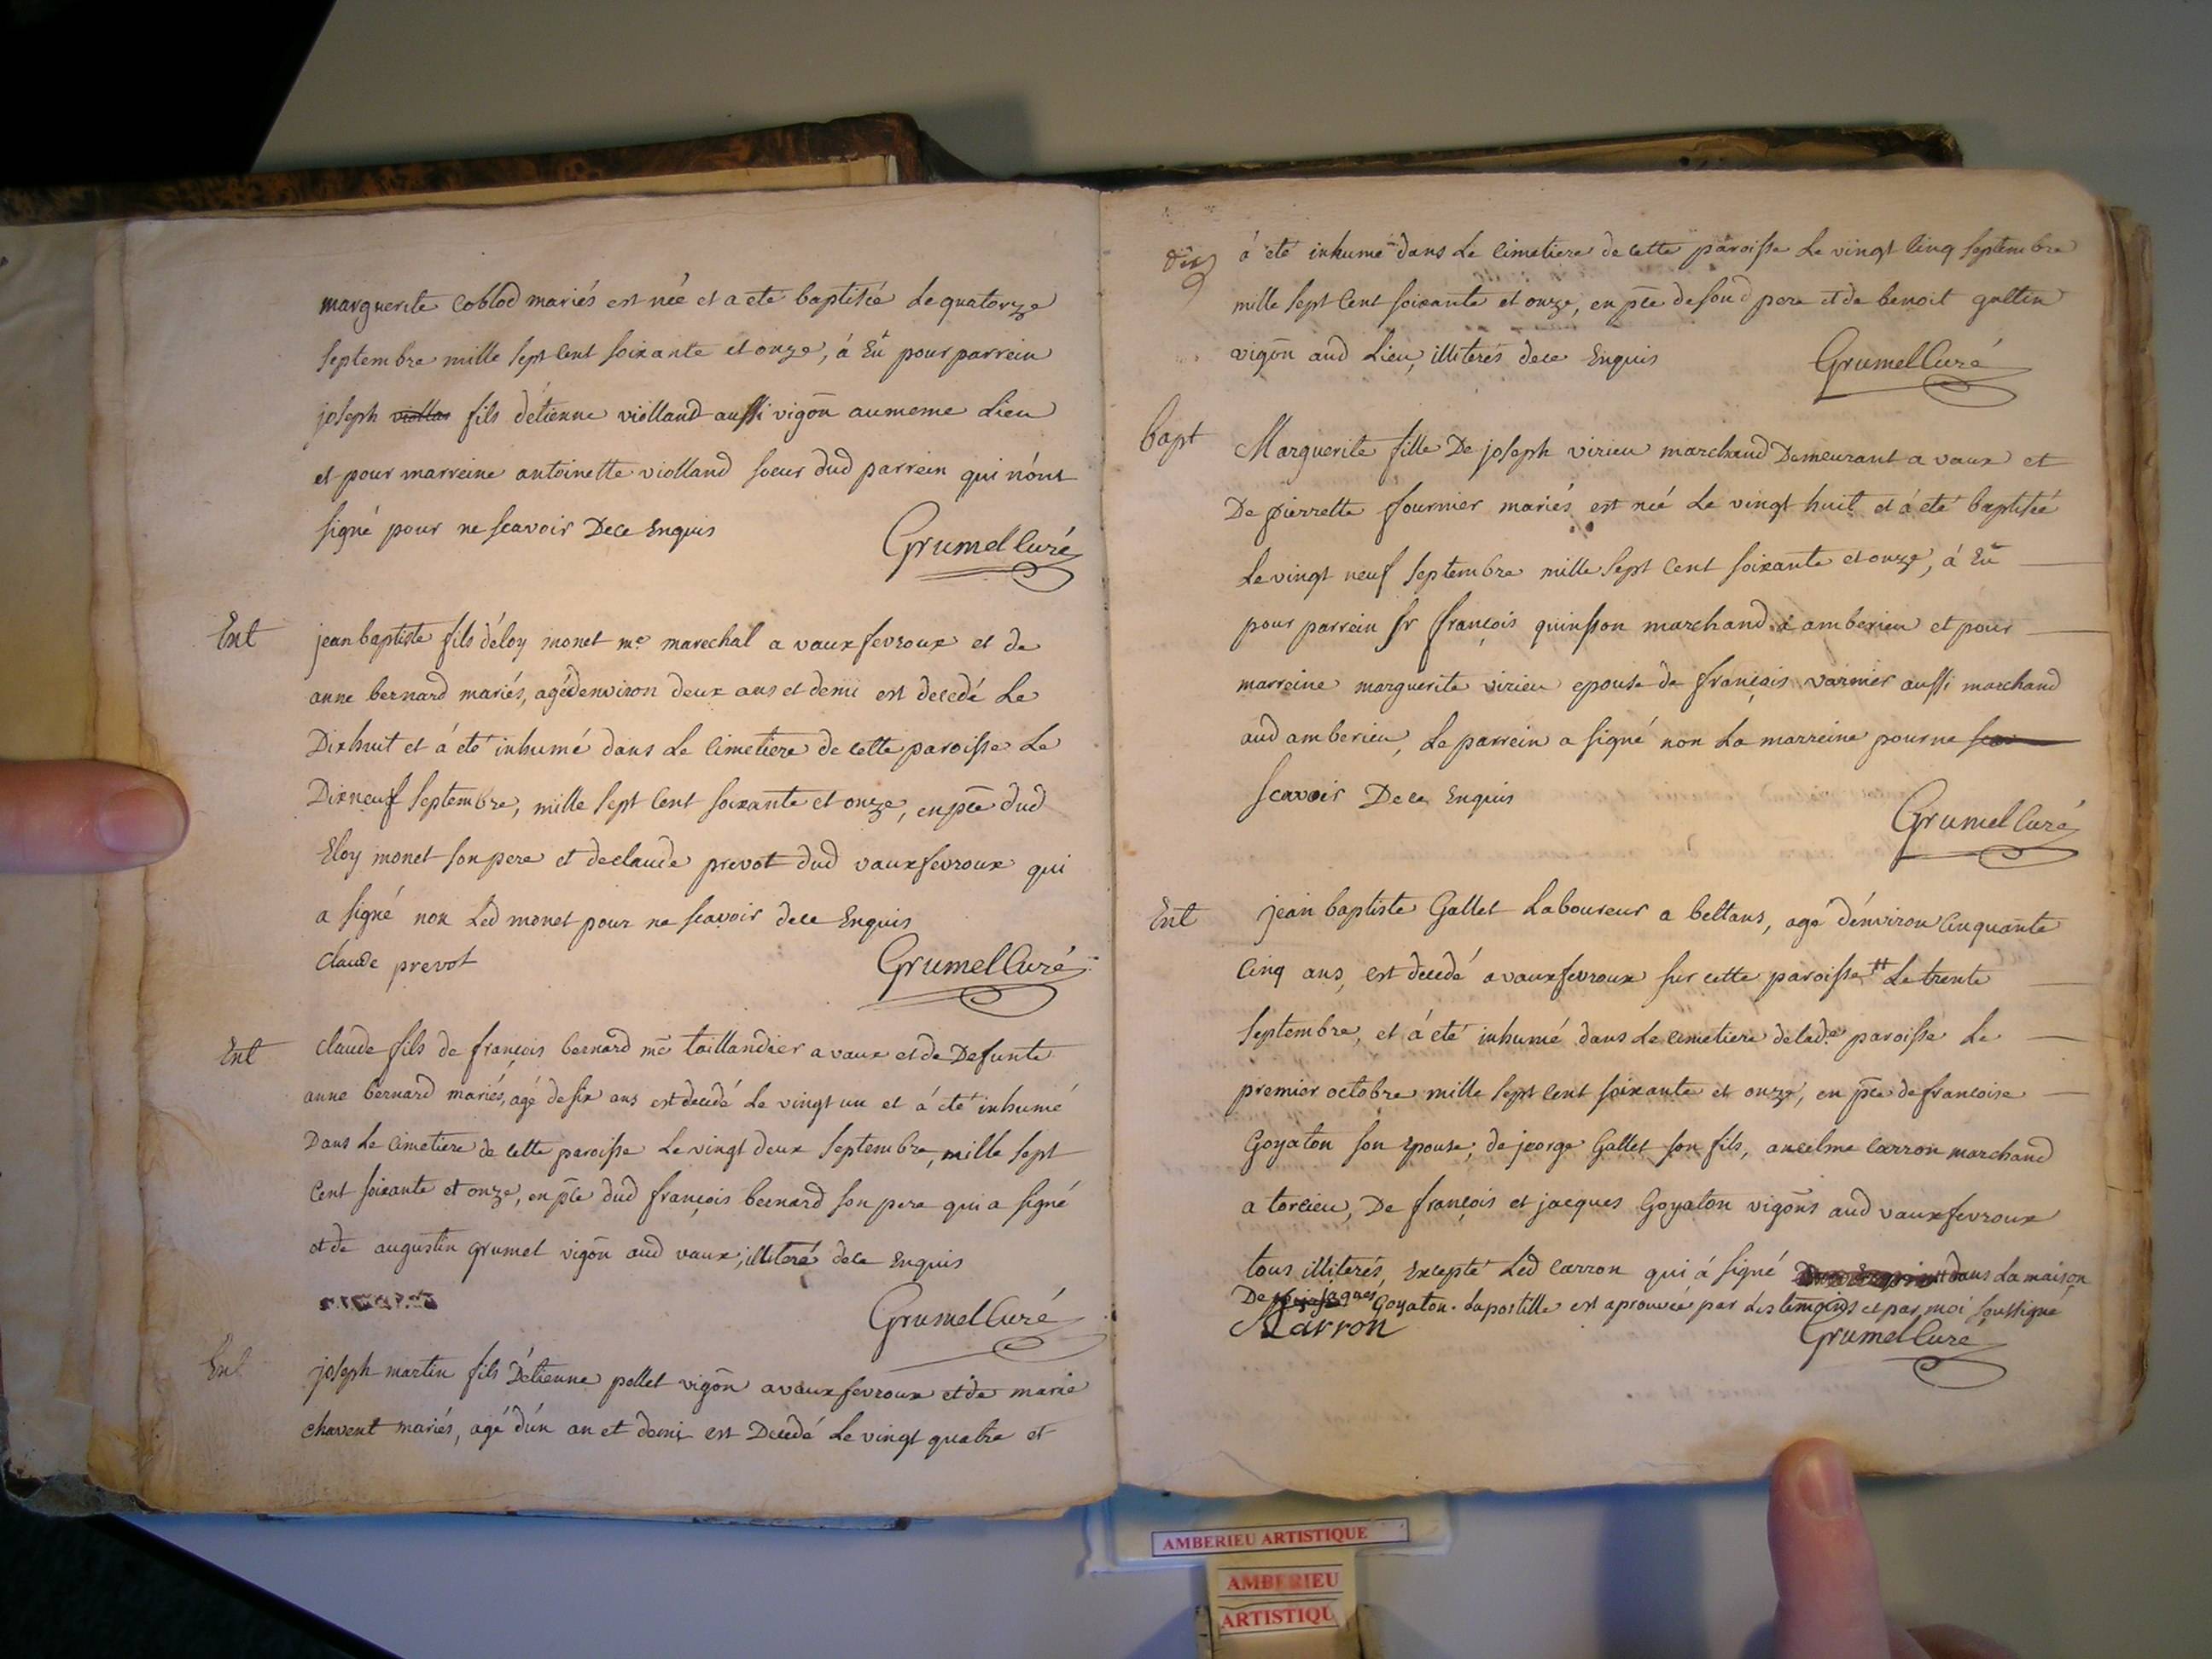 marguerite Coblod mariés est née et a eté baptisée Le quatorze
septembre mille sept Cent soixante et onze, á Eû pour parrein
joseph viollan fils détienne violland aussi vigõn au meme Lieu
et pour marreine antoinette violland soeur dud parrein qui n'ónt
signé pour ne scavoir De ce Enquis
Grumel Curé
Ent
jean baptiste fils d'éloy monet me marechal a vaux fevroux et de
anne bernard mariés, agé denviron deux ans et demi est decedé Le
Dixhuit et á eté inhumé dans Le Cimetiere de cette paroisse Le
Dixneuf septembre, mille sept Cent soixante et onze, en pce dud
Eloy monet son pere et de claude prevot dud vauxfevroux qui
a signé non Led monet pour ne scavoir de ce Enquis
Claude prevot
Grumel Curé
Ent
Claude fils de françois bernard me taillandier a vaux et de Defunte
anne bernard mariés, agé de six ans est decedé Le vingt un et á eté inhumé
Dans Le Cimetiere de cette paroisse Le vingt deux septembre, mille sept
Cent soixante et onze, en pce dud françois bernard son pere qui a signé
et de augustin grumel vigõn aud vaux, illiteré de ce Enquis
Grumel Curé
Ent
joseph martin fils D'étienne pellet vigõn a vaux fevroux et de marie
chavent mariés, agé d'ún an et demi est Decedé Le vingt quatre et
dix
á eté inhumé dans Le Cimetiere de cette paroisse Le vingt Cinq septembre
mille sept Cent soixante et onze, en pce de sond pere et de benoit gattin
vigõn aud Lieu, illiterés de ce Enquis
Grumel Curé
bapt
Marguerite fille De joseph virieu marchand Demeurant a vaux et
De pierrette fournier mariés est née Le vingt huit et á eté baptisée
Le vingt neuf septembre mille sept Cent soixante et onze, á Eû
pour parrein sr françois quinsson marchand a amberieu et pour
marreine marguerite virieu epouse de françois varinier aussi marchand
aud amberieu, Le parrein a signé non La marreine pour ne sca
scavoir De ce Enquis
Grumel Curé
Ent
jean baptiste Gallet Laboureur a bettans, agé d'énviron Cinquante
Cinq ans, est decedé a vauxfevroux sur cette paroisse # Le trente
septembre, et á eté inhumé dans Le Cimetiere de lade paroisse Le
premier octobre mille sept Cent soixante et onze, en pce de francoise
Goyaton son Epouse, de jeorge Gallet son fils, anselme Carron marchand
a torcieu, De françois et jacques Goyaton vigõns aud vauxfevroux
tous illiterés, Excepté Led Carron qui á signé # dans La maison
De jacques Goyaton. Lapostille est aprouvée par Les temoins et par moi soussigné
Carron
Grumel Curé
AMBERIEU ARTISTIQUE
AMBERIEU
ARTISTIQU